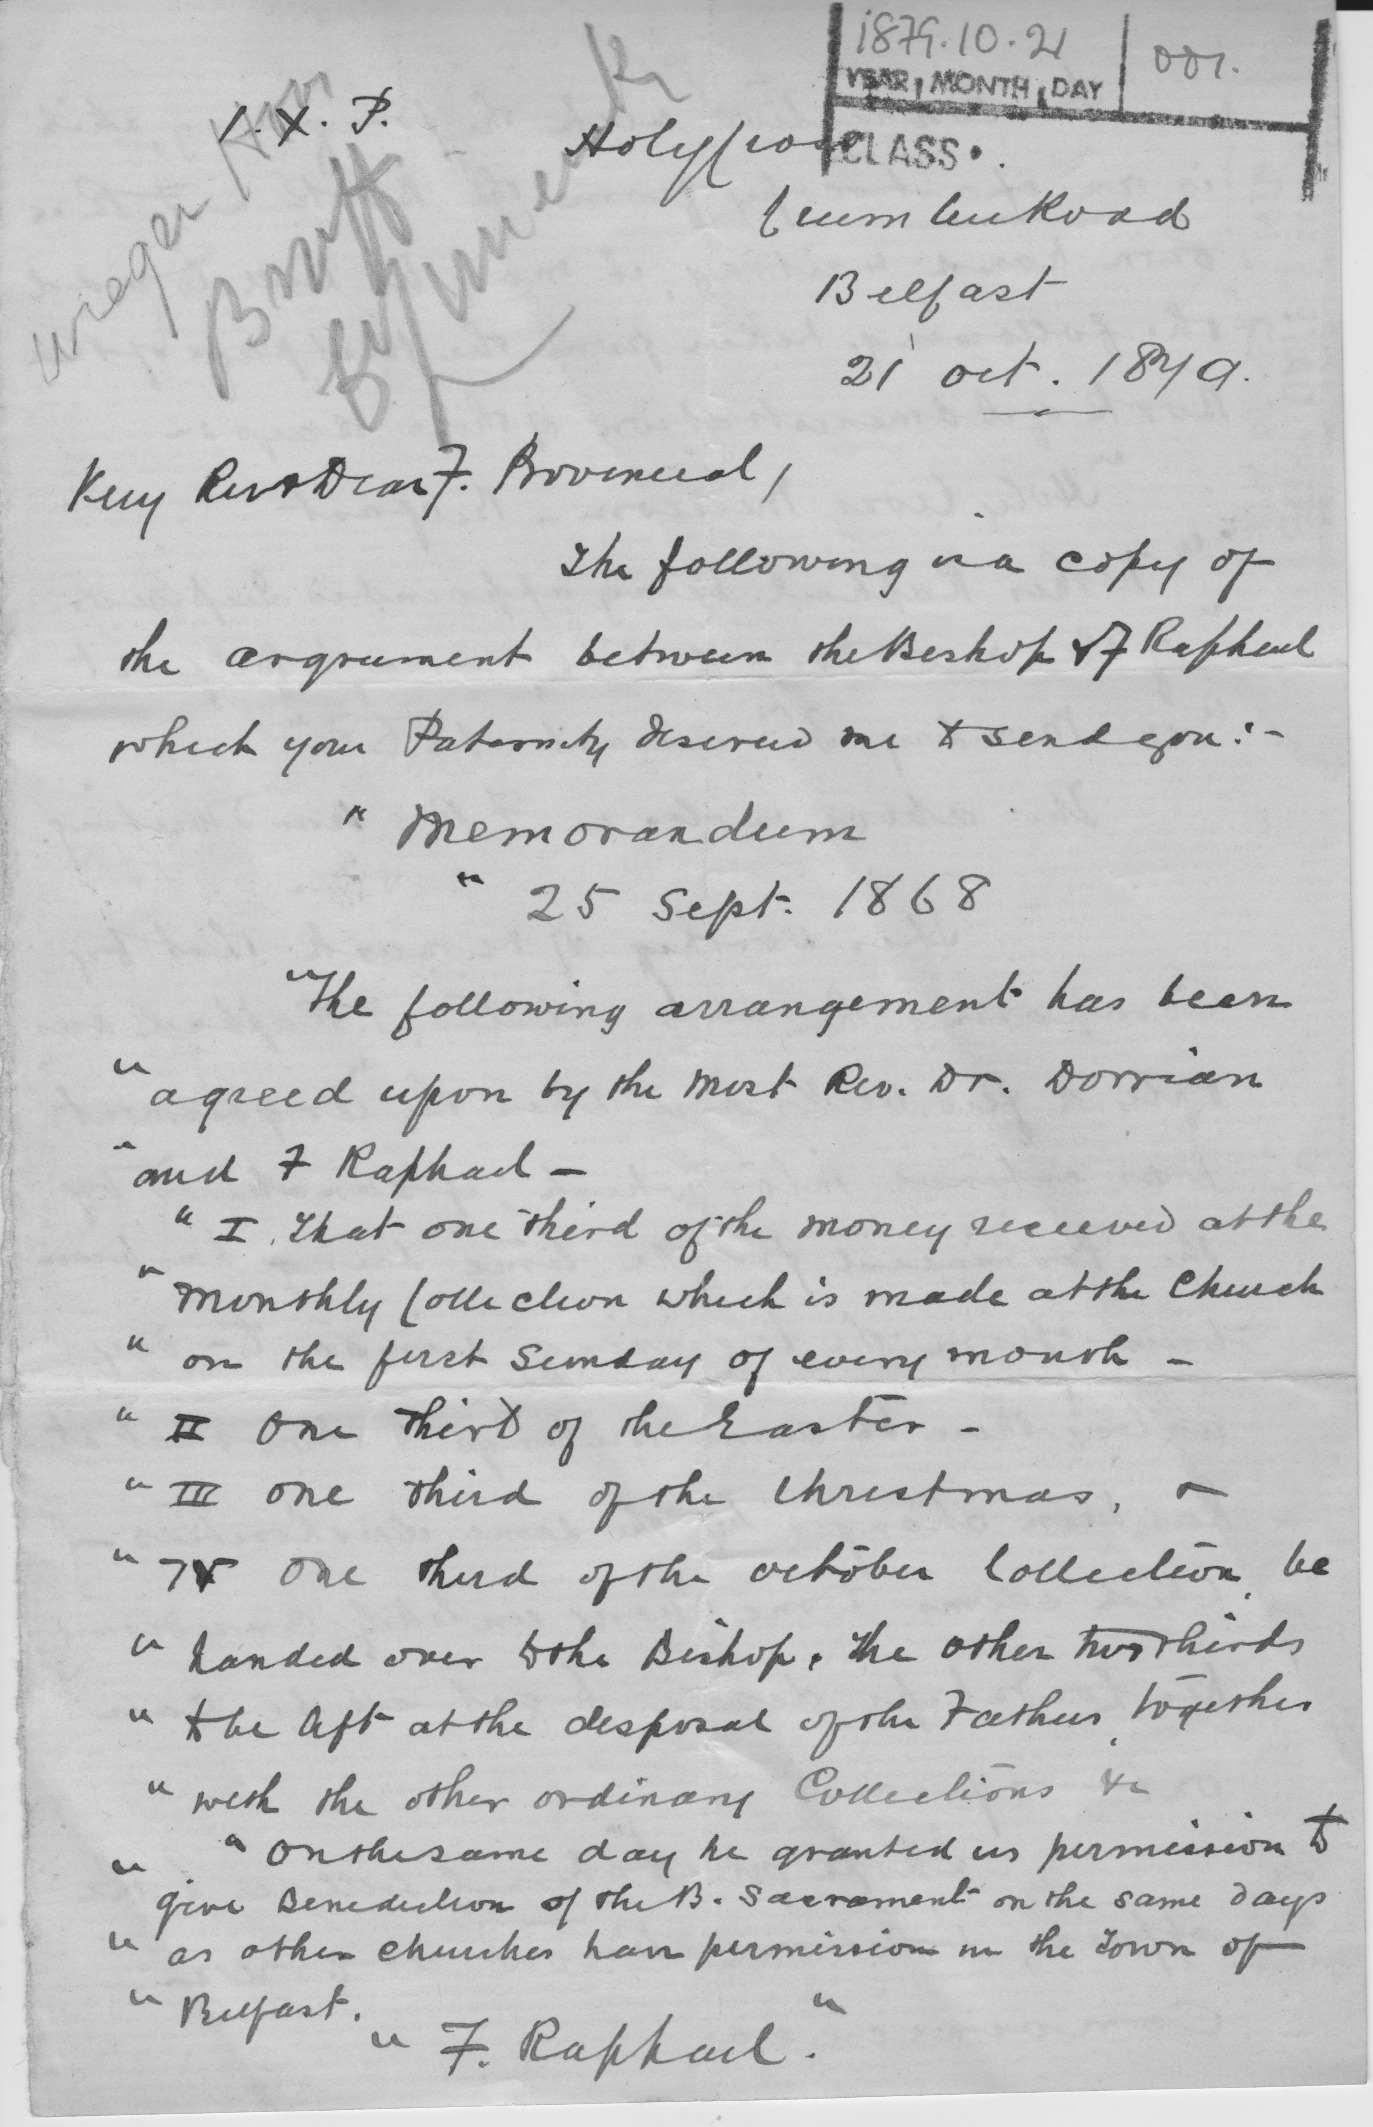 1879.10.21 001.
YEAR, MONTH, DAY
CLASS.
J. X. P.
Holy Cross
Crumlin Road
Belfast
21 Oct. 1879.
Very Rev & Dear F. Provincial,
The following is a copy of
the argrument between the Bishop & F Raphael
which your Paternity desired me to send you:-
" Memorandum
" 25 Sept. 1868
"The following arrangement has been
"agreed upon by the Most Rev. Dr. Dorrian
"and F Raphael —
" I. That one third of the money received at the
" Monthly Collection which is made at the Church
" on the first Sunday of every month -
" II One third of the Easter -
" III One third of the Christmas, &
" IV One third of the October Collection, be
" handed over to the Bishop. The other two thirds
" to be left at the disposal of the Fathers, together
" with the other ordinary Collections &c
" On the same day he granted us permission to
" give Benediction of the B. Sacrament on the same days
" as other churches have permission in the Town of
" Belfast.
" F. Raphael."